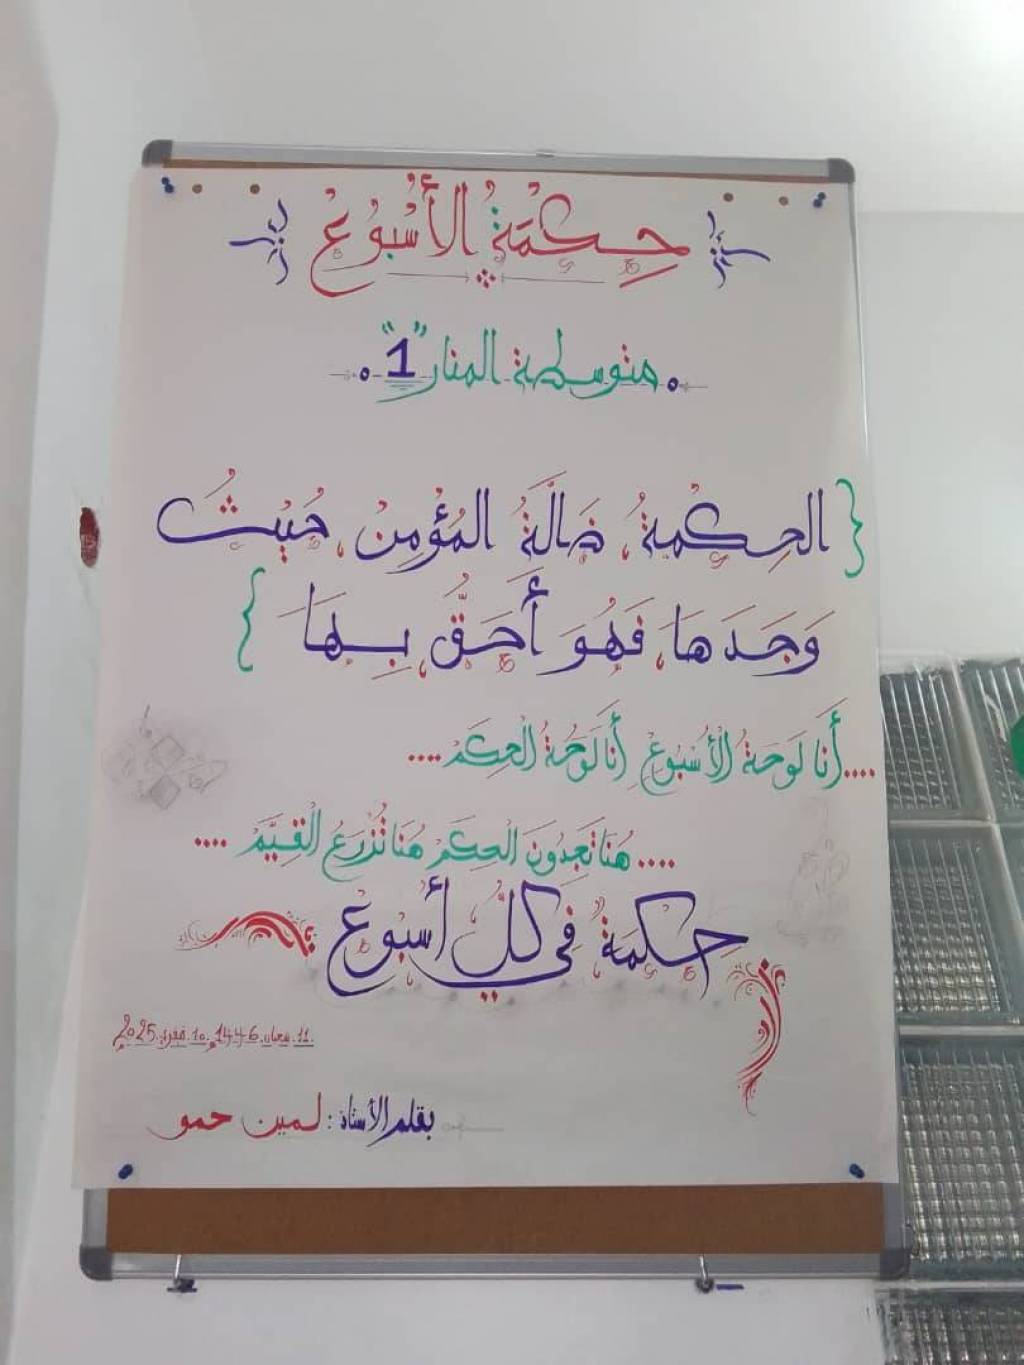 حِكْمَةُ الأُسْبُوعُ
متوسطة المنار "1"
{ الحِكْمَةُ ضَالَّةُ المُؤْمِنُ، حَيْثُ
وَجَدَهَا، فَهُوَ أَحَقُّ بِهَا }
....أَنَا لَوحَةُ الْأُسْبُوعْ أَنَا لَوْحَةُ الْحِكَمْ....
....هُنَا تَجِدُونَ الحِكَمْ هُنَا تُزْرَعُ الْقِيَّمْ....
حِكْمَةُ فِي كُلِّ أُسْبُوعْ
11.شعبان.1446م.10.فيفري.2025م
بقلم الأستاذ : لمين حمو